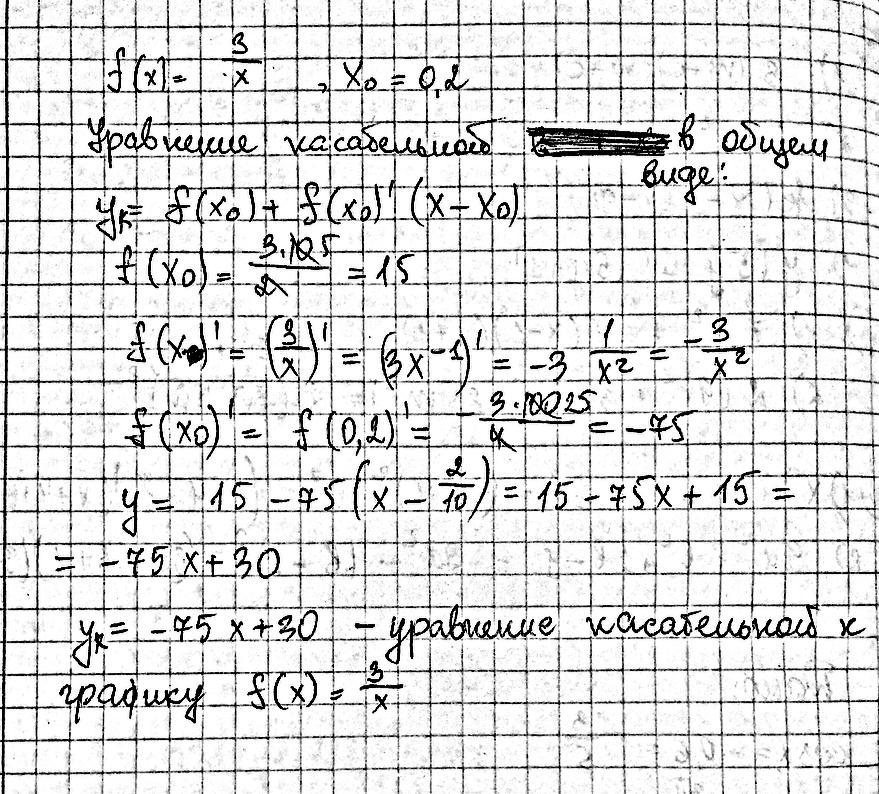 f(x) = 3/x , x₀ = 0,2
Уравнение касательной в общем
виде:
yₖ = f(x₀) + f(x₀)' (x – x₀)
f(x₀) = 3·10 5/2 = 15
f(x)' = (3/x)' = (3x⁻¹)' = -3 1/x² = -3/x²
f(x₀)' = f(0,2)' = - 3·100 25/4 = -75
y = 15 - 75(x - 2/10) = 15 - 75x + 15 =
= -75x + 30
yₖ = -75x + 30 – уравнение касательной к
графику f(x) = 3/x